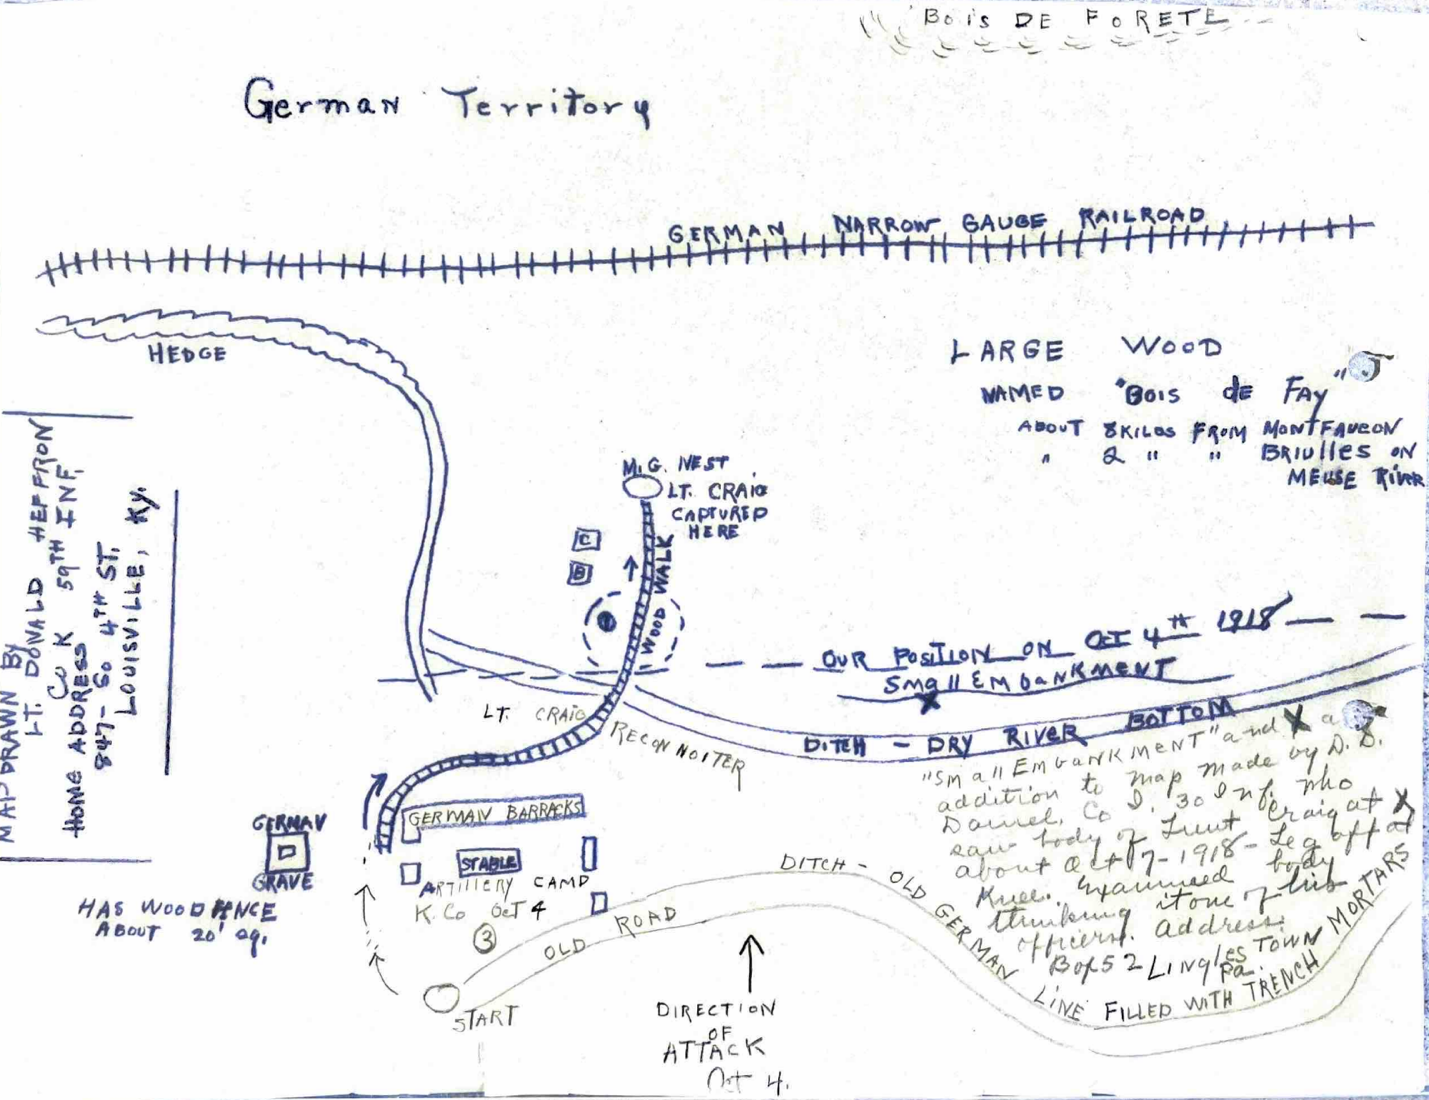 BOIS DE FORETE
German Territory
GERMAN NARROW GAUGE RAILROAD
HEDGE
LARGE WOOD
NAMED "BOIS dE FAY"
ABOUT 8 KILOS FROM MONTFAUCON
" 2 " " BRIULLES ON
MEUSE RIVER
MAP DRAWN BY
LT. DONALD HEFFRON
Co K 59TH INF.
HOME ADDRESS
847- So 4TH ST.
LOUISVILLE, Ky.
M.G. NEST
LT. CRAIG
CAPTURED
HERE
C
B
WOOD WALK
OUR POSITION ON OCT 4TH 1918
SMall EMbanKMENT
X
DITCH - DRY RIVER BOTTOM
LT. CRAIG
RECONNOITER
"Small EmbanKMENT" and X a
addition to map made by D.D.
Daniel, Co I. 30 Inf. who
saw body of Lieut Craig at X
about Oct 17-1918- Leg off at
Knee. Examined body
thinking it one of his
officers. Address:
Box 52 LinglesTOWN
Pa.
GERMAN BARRACKS
STABLE
ARTILLERY CAMP
K. Co Oct 4
3
GERMAN
GRAVE
HAS WOOD FENCE
ABOUT 20' sq.
OLD ROAD
START
DITCH - OLD GERMAN LINE FILLED WITH TRENCH MORTARS
DIRECTION
OF
ATTACK
Oct 4.